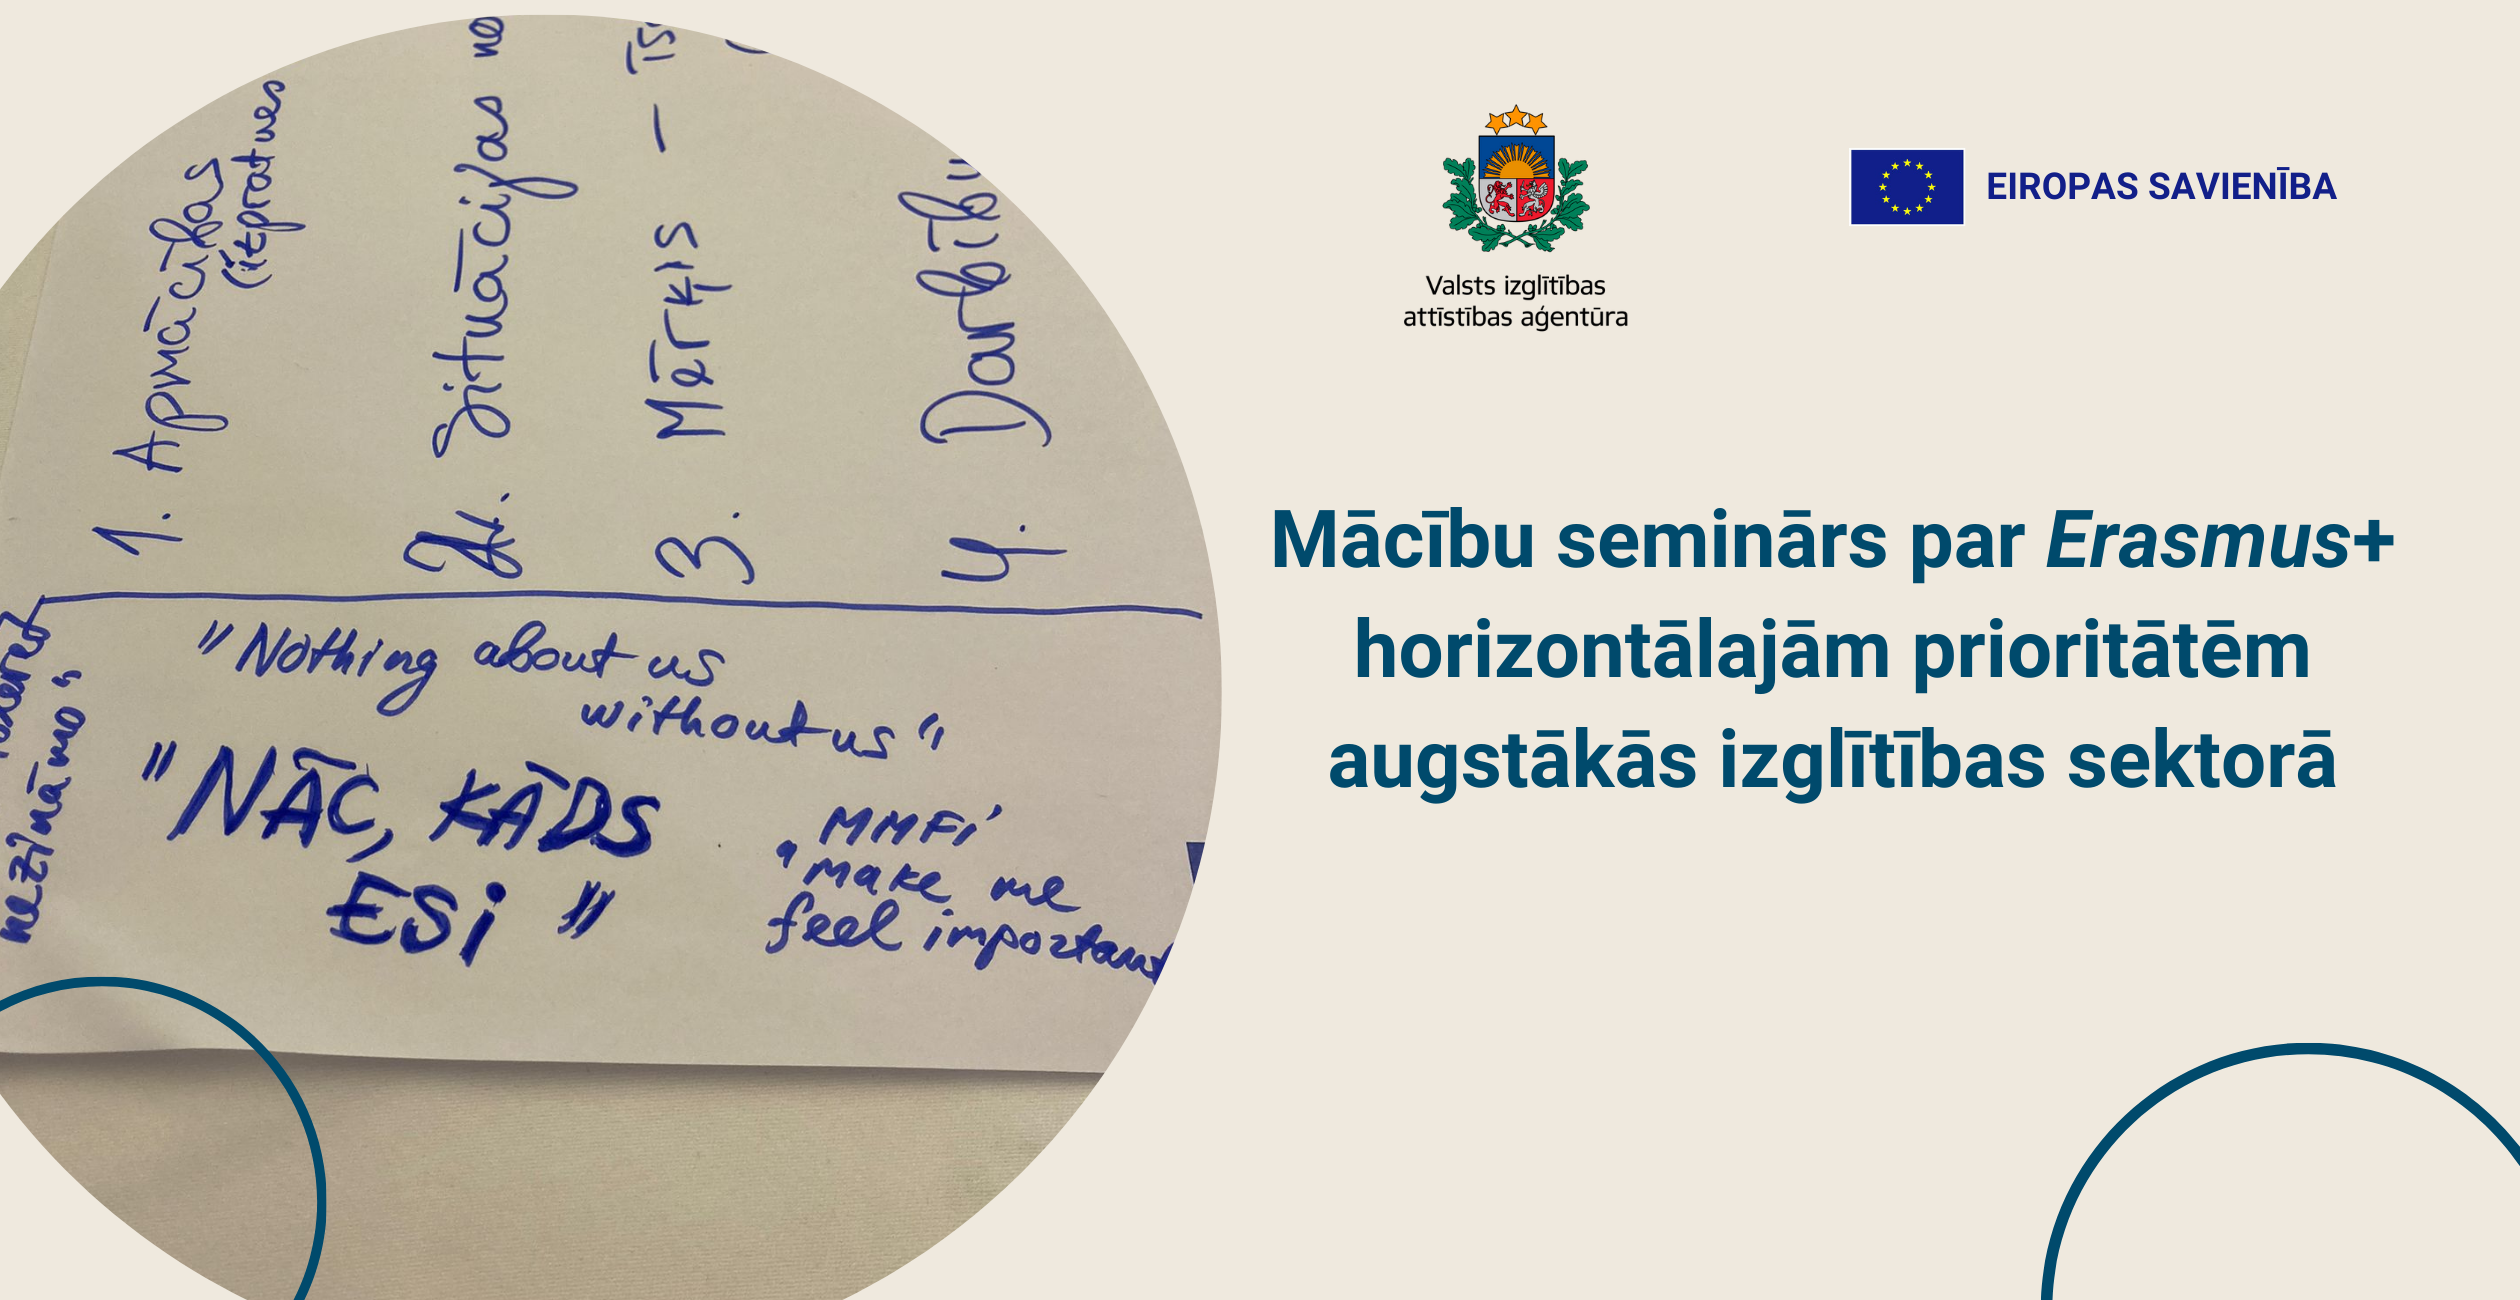 1. Apmācības
(izpratnes
2. Situācijas
3. Mērķis –
4.
"Nothing about us
without us"
"NĀC, KĀDS
ESi"
MMFi
"make me
feel important
nezināmo"
Valsts izglītības
attīstības aģentūra
EIROPAS SAVIENĪBA
Mācību seminārs par Erasmus+
horizontālajām prioritātēm
augstākās izglītības sektorā